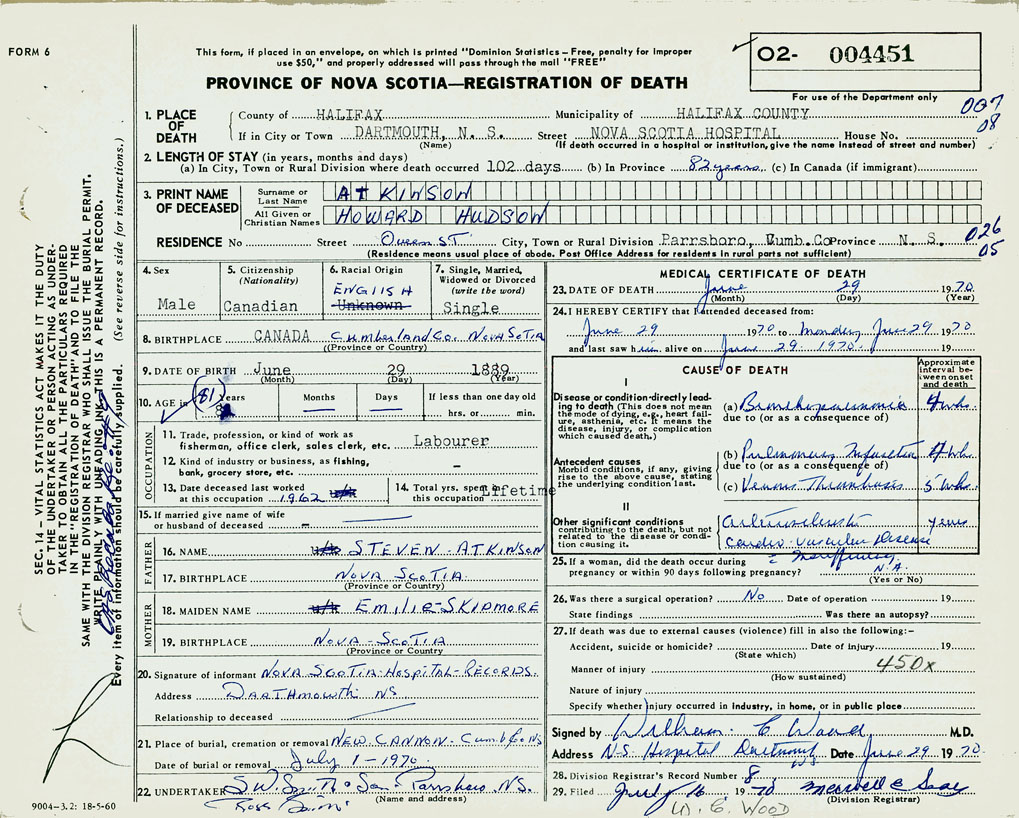 FORM 6
This form, if placed in an envelope, on which is printed "Dominion Statistics – Free, penalty for improper
use $50," and properly addressed will pass through the mail "FREE"
PROVINCE OF NOVA SCOTIA—REGISTRATION OF DEATH
02- 004451
For use of the Department only
007
08
1. PLACE OF DEATH
County of HALIFAX Municipality of HALIFAX COUNTY
If in City or Town DARTMOUTH, N. S. Street NOVA SCOTIA HOSPITAL House No.
(Name) (If death occurred in a hospital or institution, give the name instead of street and number)
2. LENGTH OF STAY (in years, months and days)
(a) In City, Town or Rural Division where death occurred 102 days (b) In Province 82 years (c) In Canada (if immigrant)
3. PRINT NAME OF DECEASED
Surname or Last Name ATKINSON
All Given or Christian Names HOWARD HUDSON
026
05
RESIDENCE No Street Queen ST. City, Town or Rural Division Parrsboro, Cumb.Co Province N. S.
(Residence means usual place of abode. Post Office Address for residents in rural parts not sufficient)
4. Sex
Male
5. Citizenship
(Nationality)
Canadian
6. Racial Origin
ENGLISH
Unknown
7. Single, Married, Widowed or Divorced
(write the word)
Single
8. BIRTHPLACE CANADA Cumberland Co. Nova Scotia
(Province or Country)
9. DATE OF BIRTH June 29 1889
(Month) (Day) (Year)
10. AGE in (81) Years Months Days If less than one day old
hrs. or min.
OCCUPATION
11. Trade, profession, or kind of work as
fisherman, office clerk, sales clerk, etc. Labourer
12. Kind of industry or business, as fishing,
bank, grocery store, etc. –
13. Date deceased last worked
at this occupation 1962 u/k
14. Total yrs. spent in
this occupation Lifetime
15. If married give name of wife
or husband of deceased –
FATHER
16. NAME u/k STEVEN - ATKINSON
17. BIRTHPLACE NOVA SCOTIA
(Province or Country)
MOTHER
18. MAIDEN NAME u/k EMILIE-SKIDMORE
19. BIRTHPLACE NOVA-SCOTIA
(Province or Country)
20. Signature of informant NOVA SCOTIA-HOSPITAL-RECORDS.
Address DARTHMOWTH NS
Relationship to deceased
21. Place of burial, cremation or removal NEW. CANNON - Cumb Co NS
Date of burial or removal July 1-1970
22. UNDERTAKER S.W. Smith & Son - Parrsboro, NS.
(Name and address)
MEDICAL CERTIFICATE OF DEATH
23. DATE OF DEATH June 29 1970.
(Month) (Day) (Year)
24. I HEREBY CERTIFY that I attended deceased from:
June 29 1970 to Monday June 29 1970
and last saw him alive on June 29. 1970. 19
CAUSE OF DEATH
Approximate interval between onset and death
I
Disease or condition directly leading to death (This does not mean the mode of dying, e.g., heart failure, asthenia, etc. It means the disease, injury, or complication which caused death.)
(a) Bronchopneumonia 4 wks.
due to (or as a consequence of)
Antecedent causes
Morbid conditions, if any, giving rise to the above cause, stating the underlying condition last.
(b) Pulmonary Infarction 4 wks
due to (or as a consequence of)
(c) Venous Thrombosis 5 wks.
II
Other significant conditions
contributing to the death, but not related to the disease or condition causing it.
Arteriosclerotic years
Cardio-Vascular Disease
c̄ Insufficiency
25. If a woman, did the death occur during
pregnancy or within 90 days following pregnancy? N.A.
(Yes or No)
26. Was there a surgical operation? No Date of operation 19
State findings Was there an autopsy?
27. If death was due to external causes (violence) fill in also the following:–
Accident, suicide or homicide? Date of injury 19
(State which)
450x
Manner of injury
(How sustained)
Nature of injury
Specify whether injury occurred in industry, in home, or in public place
Signed by William E Wood M.D.
Address N-S. Hospital Dartmouth NS Date June 29 1970.
28. Division Registrar's Record Number 8
29. Filed July 16 1970
(Division Registrar)
W. E. WOOD
9004–3.2: 18-5-60
SEC. 14 – VITAL STATISTICS ACT MAKES IT THE DUTY
OF THE UNDERTAKER OR PERSON ACTING AS UNDER-
TAKER TO OBTAIN ALL THE PARTICULARS REQUIRED
IN THE "REGISTRATION OF DEATH" AND TO FILE THE
SAME WITH THE DIVISION REGISTRAR WHO SHALL ISSUE THE BURIAL PERMIT.
WRITE PLAINLY WITH UNFADING INK, THIS IS A PERMANENT RECORD.
Every item of information should be carefully supplied. (See reverse side for instructions.)